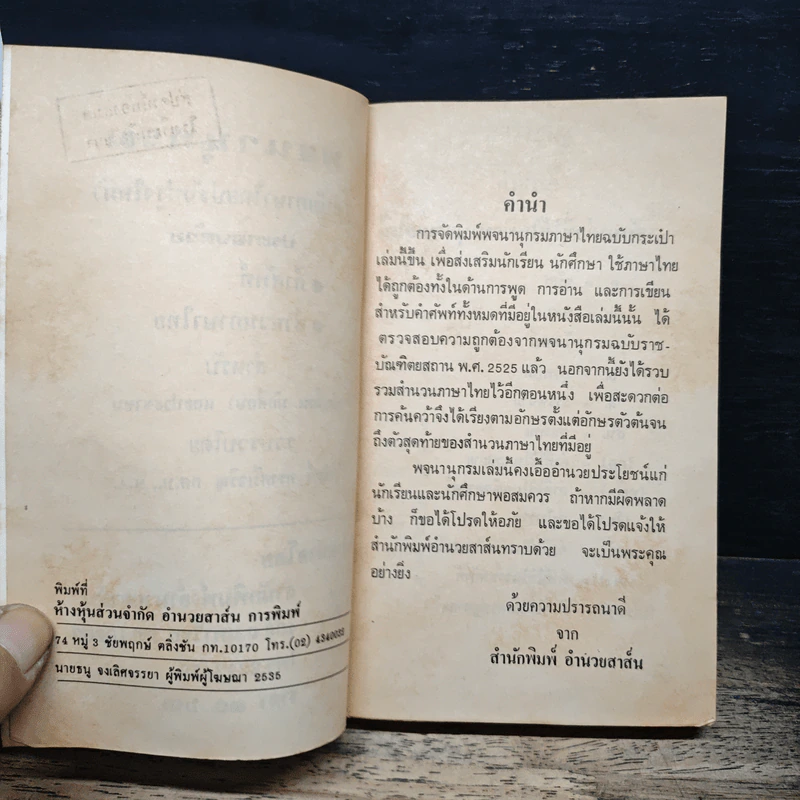 พิมพ์ที่
ห้างหุ้นส่วนจำกัด อำนวยสาส์น การพิมพ์
74 หมู่ 3 ชัยพฤกษ์ ตลิ่งชัน กท.10170 โทร.(02)
นายธนู จงเลิศจรรยา ผู้พิมพ์ผู้โฆษณา 2535
คำนำ
การจัดพิมพ์พจนานุกรมภาษาไทยฉบับกระเป๋า
เล่มนี้ขึ้น เพื่อส่งเสริมนักเรียน นักศึกษา ใช้ภาษาไทย
ได้ถูกต้องทั้งในด้านการพูด การอ่าน และการเขียน
สำหรับคำศัพท์ทั้งหมดที่มีอยู่ในหนังสือเล่มนี้นั้น ได้
ตรวจสอบความถูกต้องจากพจนานุกรมฉบับราช-
บัณฑิตยสถาน พ.ศ. 2525 แล้ว นอกจากนี้ยังได้รวบ
รวมสำนวนภาษาไทยไว้อีกตอนหนึ่ง เพื่อสะดวกต่อ
การค้นคว้าจึงได้เรียงตามอักษรตั้งแต่อักษรตัวต้นจน
ถึงตัวสุดท้ายของสำนวนภาษาไทยที่มีอยู่
พจนานุกรมเล่มนี้คงเอื้ออำนวยประโยชน์แก่
นักเรียนและนักศึกษาพอสมควร ถ้าหากมีผิดพลาด
บ้าง ก็ขอได้โปรดให้อภัย และขอได้โปรดแจ้งให้
สำนักพิมพ์อำนวยสาส์นทราบด้วย จะเป็นพระคุณ
อย่างยิ่ง
ด้วยความปรารถนาดี
จาก
สำนักพิมพ์ อำนวยสาส์น